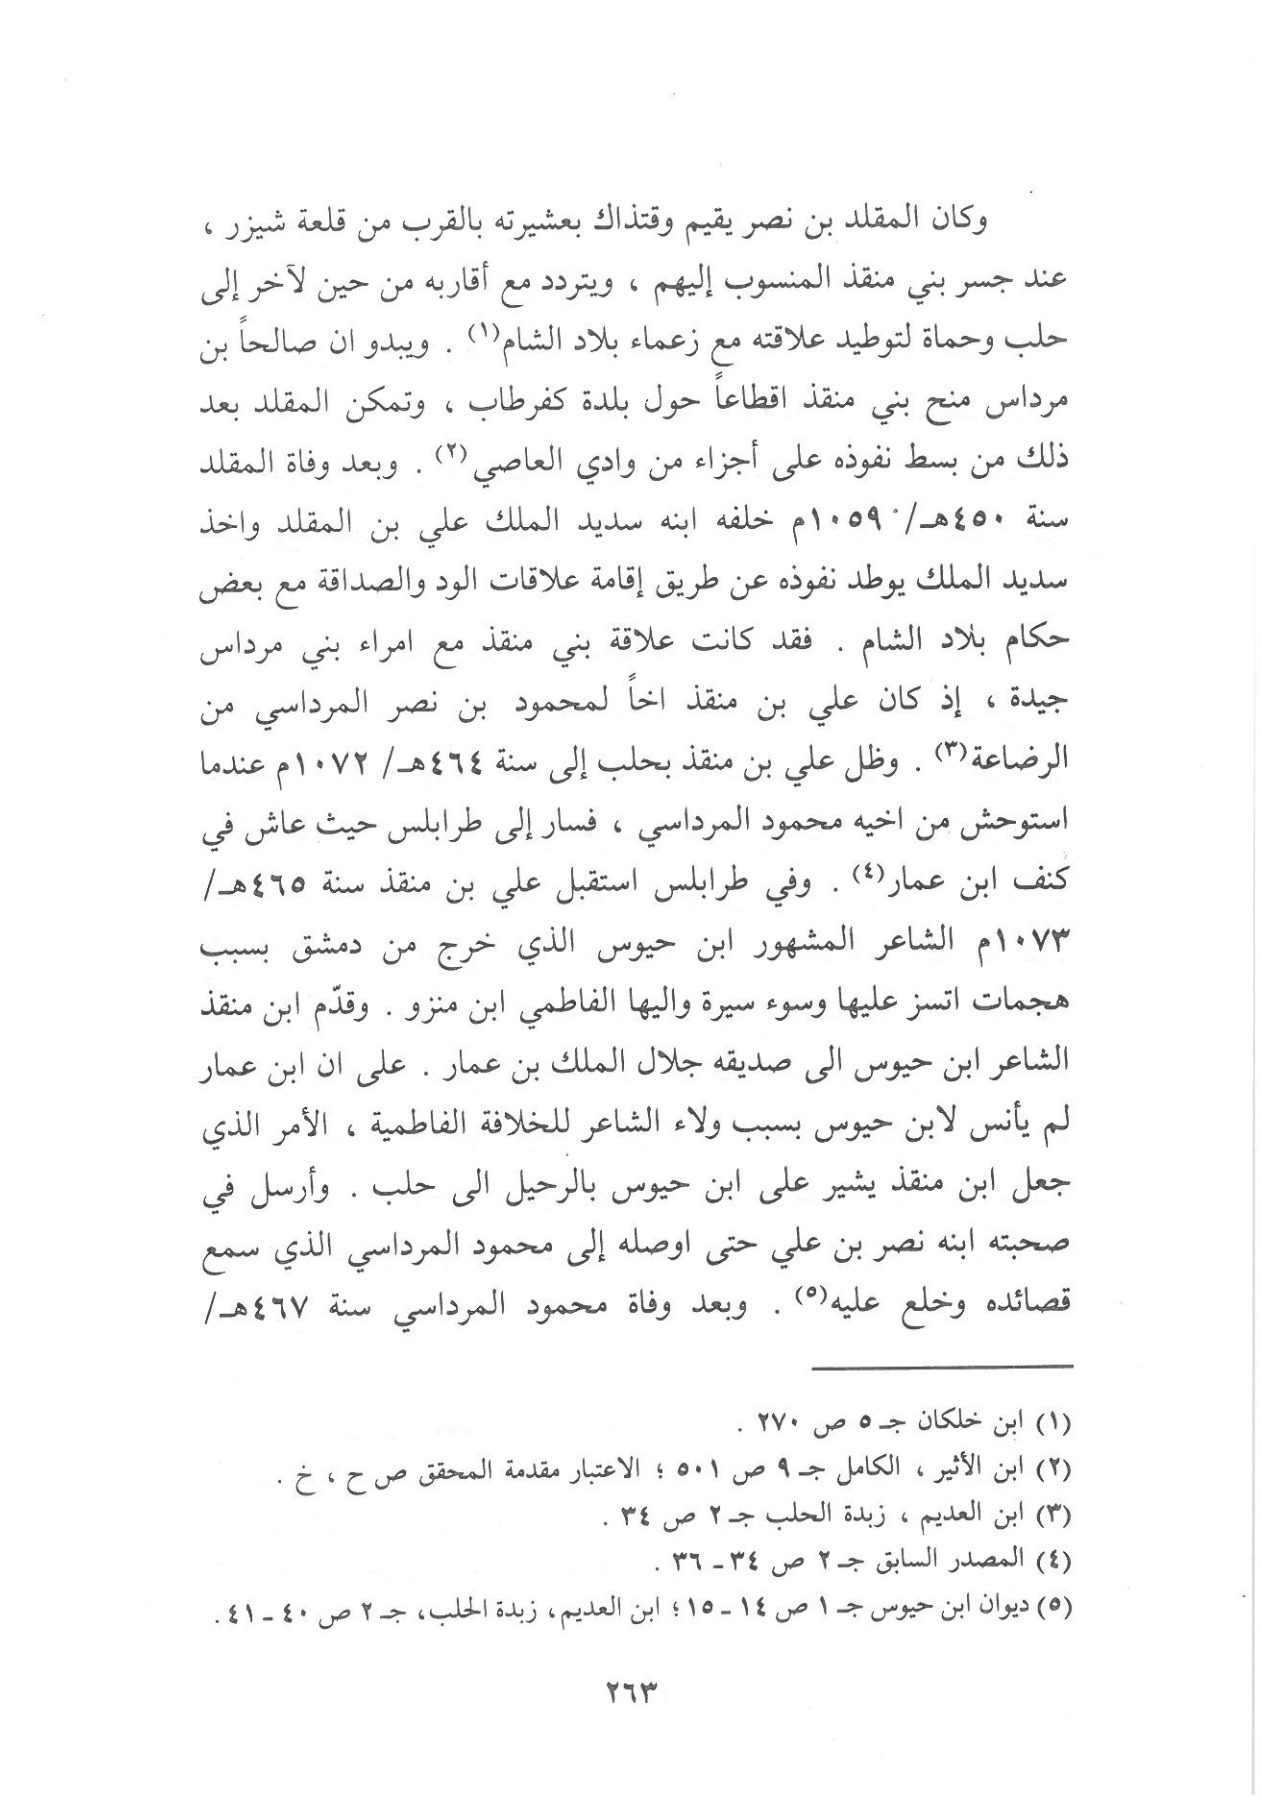 وكان المقلد بن نصر يقيم وقتذاك بعشيرته بالقرب من قلعة شيزر ،
عند جسر بني منقذ المنسوب إليهم ، ويتردد مع أقاربه من حين لآخر إلى
حلب وحماة لتوطيد علاقته مع زعماء بلاد الشام(١) . ويبدو ان صالحاً بن
مرداس منح بني منقذ اقطاعاً حول بلدة كفرطاب ، وتمكن المقلد بعد
ذلك من بسط نفوذه على أجزاء من وادي العاصي(٢) . وبعد وفاة المقلد
سنة ٤٥٠هـ/ ١٠٥٩م خلفه ابنه سديد الملك علي بن المقلد واخذ
سديد الملك يوطد نفوذه عن طريق إقامة علاقات الود والصداقة مع بعض
حكام بلاد الشام . فقد كانت علاقة بني منقذ مع امراء بني مرداس
جيدة ، إذ كان علي بن منقذ اخاً لمحمود بن نصر المرداسي من
الرضاعة(٣) . وظل علي بن منقذ بحلب إلى سنة ٤٦٤هـ/ ١٠٧٢م عندما
استوحش من اخيه محمود المرداسي ، فسار إلى طرابلس حيث عاش في
كنف ابن عمار(٤) . وفي طرابلس استقبل علي بن منقذ سنة ٤٦٥هـ/
١٠٧٣م الشاعر المشهور ابن حيوس الذي خرج من دمشق بسبب
هجمات اتسز عليها وسوء سيرة واليها الفاطمي ابن منزو . وقدّم ابن منقذ
الشاعر ابن حيوس الى صديقه جلال الملك بن عمار . على ان ابن عمار
لم يأنس لابن حيوس بسبب ولاء الشاعر للخلافة الفاطمية ، الأمر الذي
جعل ابن منقذ يشير على ابن حيوس بالرحيل الى حلب . وأرسل في
صحبته ابنه نصر بن علي حتى اوصله إلى محمود المرداسي الذي سمع
قصائده وخلع عليه(٥) . وبعد وفاة محمود المرداسي سنة ٤٦٧هـ/
(١) ابن خلكان جـ ٥ ص ٢٧٠ .
(٢) ابن الأثير ، الكامل جـ ٩ ص ٥٠١ ؛ الاعتبار مقدمة المحقق ص ح ، خ .
(٣) ابن العديم ، زبدة الحلب جـ ٢ ص ٣٤ .
(٤) المصدر السابق جـ ٢ ص ٣٤ ـ ٣٦ .
(٥) ديوان ابن حيوس جـ ١ ص ١٤ ـ ١٥؛ ابن العديم، زبدة الحلب، جـ ٢ ص ٤٠ ـ ٤١ .
٢٦٣